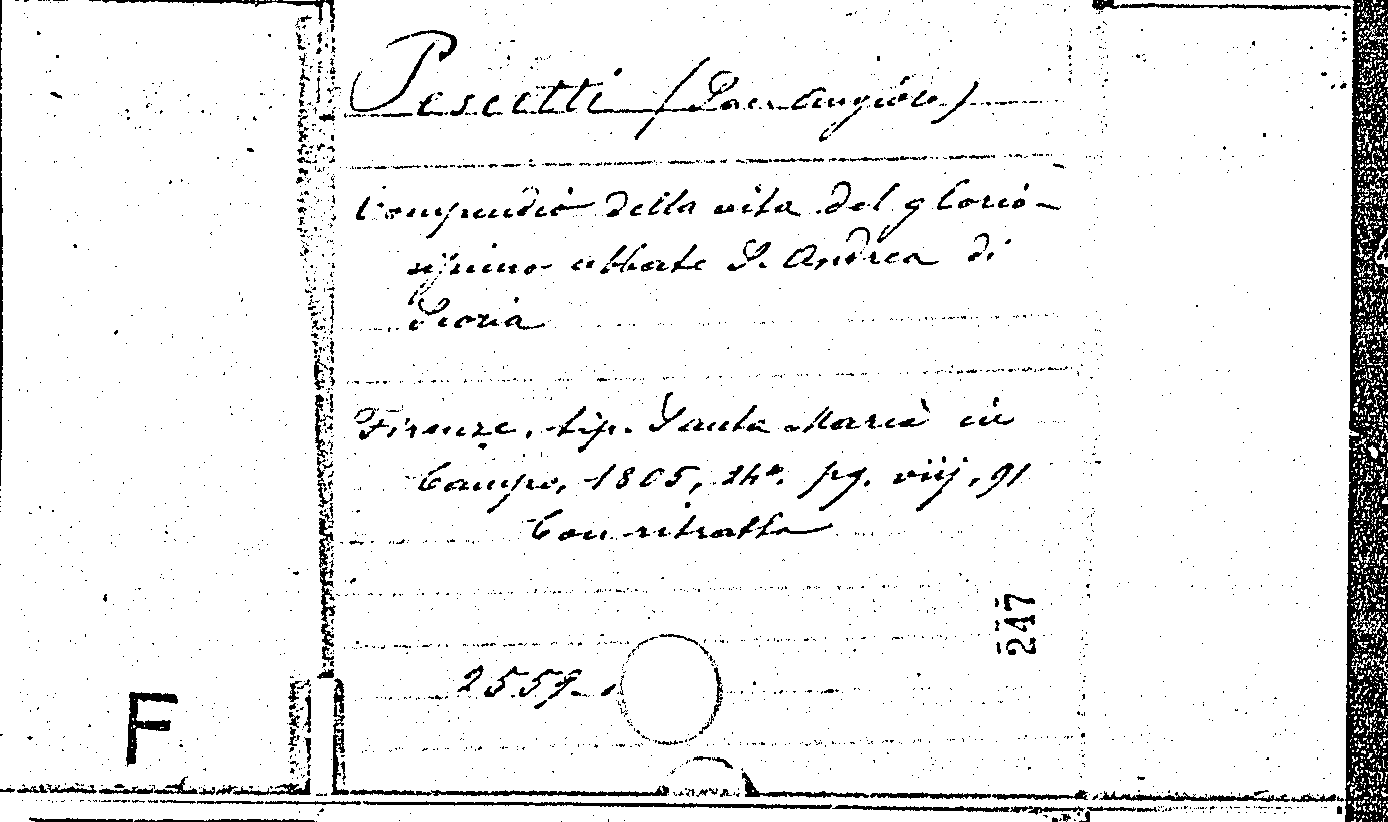 Pescetti (Pier Angiolo)
Compendio della vita del glorio-
sissimo abbate S. Andrea di
Scozia
Firenze, tip. Santa Maria in
Campo, 1805, 24°. pg. viij, 91
Con ritratto
247
2559
F